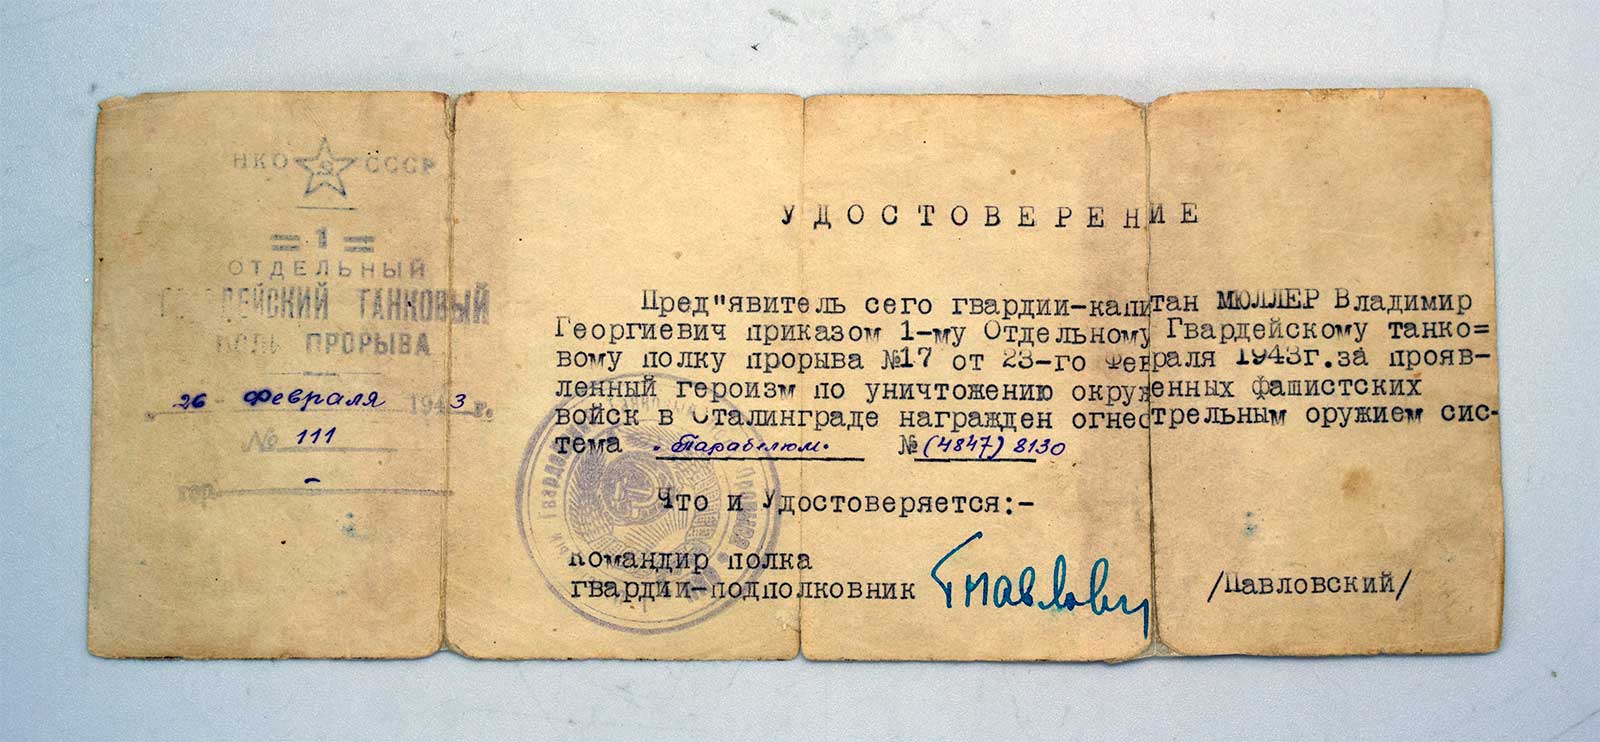 НКО СССР
= 1 =
ОТДЕЛЬНЫЙ
ГВАРДЕЙСКИЙ ТАНКОВЫЙ
ПОЛК ПРОРЫВА
„ 26 " Февраля 1943 г.
№ 111
гор. -
УДОСТОВЕРЕНИЕ
Пред"явитель сего гвардии-капитан МЮЛЛЕР Владимир
Георгиевич приказом 1-му Отдельному Гвардейскому танко=
вому полку прорыва №17 от 23-го Февраля 1943г. за прояв-
ленный героизм по уничтожению окруженных фашистских
войск в Сталинграде награжден огнестрельным оружием сис-
тема "Парабелюм" № (4847) 8130
Что и Удостоверяется:-
Командир полка
гвардии-подполковник /Павловский/